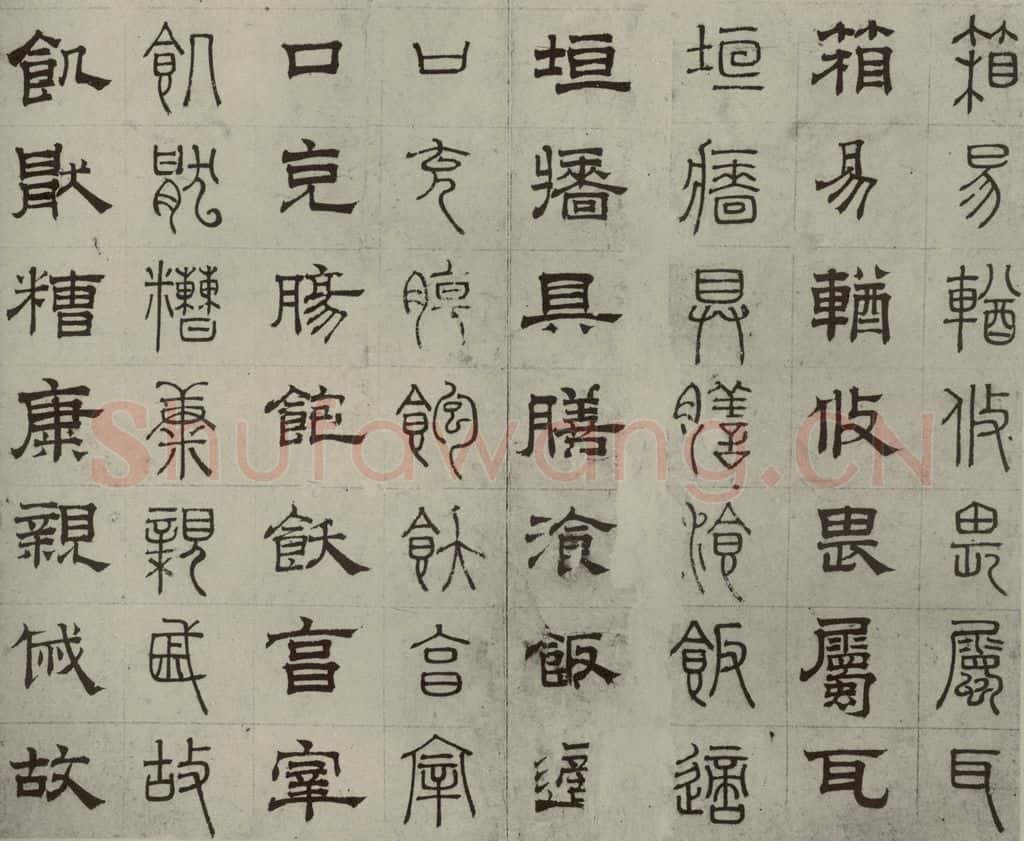 箱易輶攸畏屬耳
箱易輶攸畏屬耳
垣牆具膳湌飯適
垣牆具膳湌飯適
口充腸飽飫亯宰
口充腸飽飫亯宰
飢猒糟康親戚故
飢猒糟康親戚故
Shufawang.CN